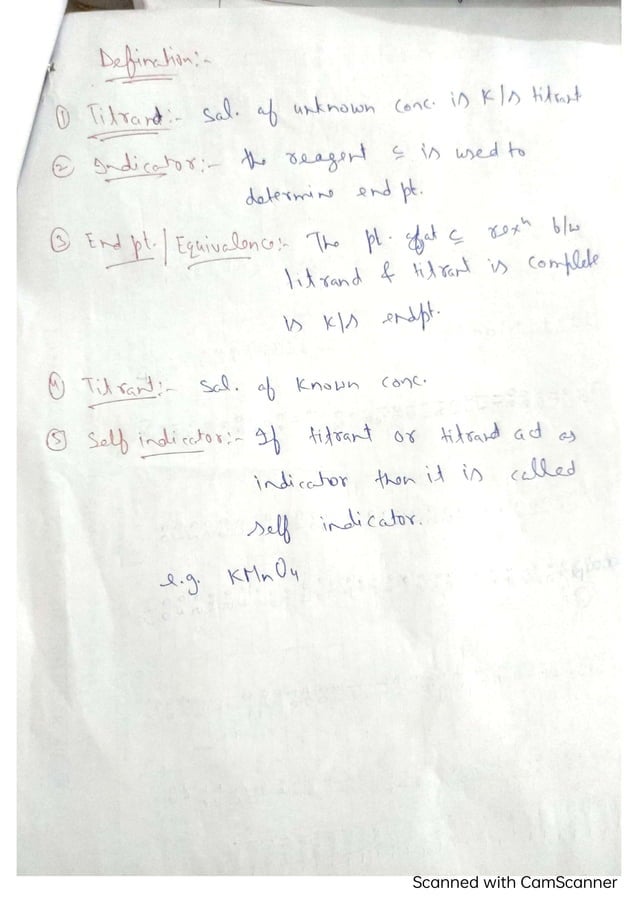 Defination:-
① Titrand:- Sol. of unknown conc. is K/s titrant
② Indicator:- the reagent c̄ is used to
determine end pt.
③ End pt./Equivalence:- The pt. at c̄ rexn b/w
titrand & titrant is complete
is K/s endpt.
④ Titrant:- Sol. of Known conc.
⑤ Self indicator:- If titrant or titrand act as
indicator then it is called
self indicator.
e.g. KMnO4
Scanned with CamScanner